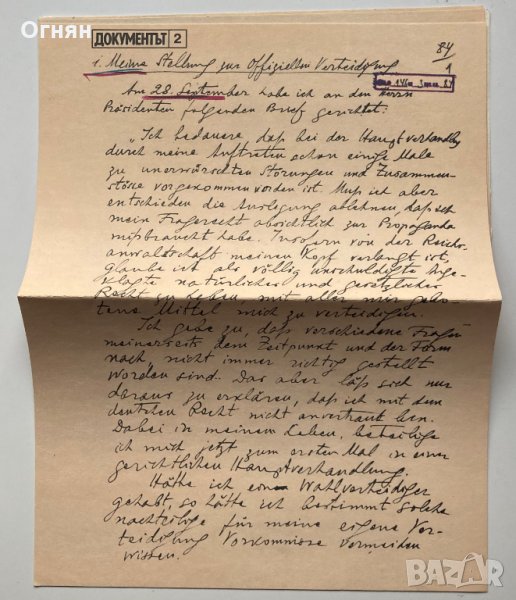 Огнян
ДОКУМЕНТЪТ 2
84/1
1. Meine Stellung zur Offiziellen Verteidigung
Am 28. September habe ich an den Herrn
Präsidenten folgenden Brief gerichtet:
"Ich bedauere daß bei der Hauptverhandlg
durch meine Auftretten schon einige Male
zu unerwünschten Störungen und Zusammen-
stösse vorgekommen worden ist. Muß ich aber
entschieden die Auslegung ablehnen, daß ich
mein Fragerecht absichtlich zur Propaganda
mißbraucht habe. Insofern von der Reichs-
anwaltschaft meinen Kopf verlangt ist,
glaube ich als völlig unschuldigte Ange-
klagte natürlicher und gesetzlicher
Recht zu haben, mit aller mir gebo-
tene Mittel mich zu verteidigen.
Ich gebe zu, daß verschiedene Fragen
meinerseits dem Zeitpunkt und der Form
nach, nicht immer richtig gestellt
worden sind. Das aber läß sich nur
daraus zu erklären, daß ich mit dem
deutschen Recht nicht anvertraut bin.
Dabei in meinem Leben, beteilige
ich mich jetzt zum ersten Mal in einer
gerichtlichen Hauptverhandlung.
Hätte ich einen Wahlverteidiger
gehabt, so hätte ich bestimmt solche
nachteilige für meine eigene Ver-
teidigung Vorkommnisse vermeiden
wissen.
BAZAR